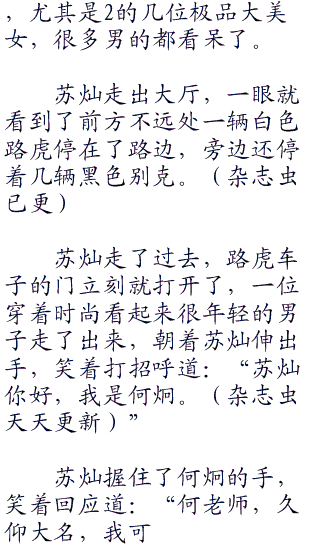 ，尤其是2的几位极品大美
女，很多男的都看呆了。
苏灿走出大厅，一眼就
看到了前方不远处一辆白色
路虎停在了路边，旁边还停
着几辆黑色别克。（杂志虫
已更）
苏灿走了过去，路虎车
子的门立刻就打开了，一位
穿着时尚看起来很年轻的男
子走了出来，朝着苏灿伸出
手，笑着打招呼道：“苏灿
你好，我是何炯。（杂志虫
天天更新）”
苏灿握住了何炯的手，
笑着回应道：“何老师，久
仰大名，我可